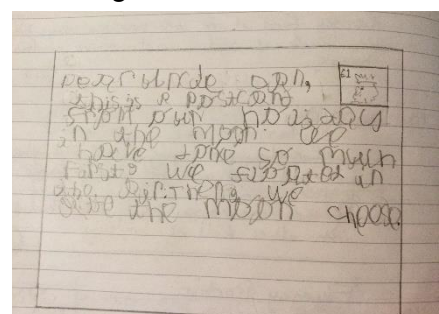 Dear uncle dan,
this is a postcard
from our holidays
in the moon. we
have done so much
first we floated in
the air. Then we
the moon cheese.
£1